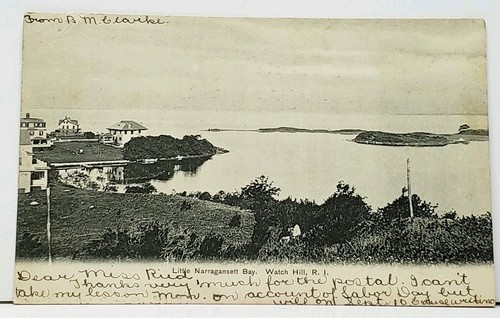 From B. M. Clarke.
Little Narragansett Bay. Watch Hill, R. I.
Dear Miss Rud
Thanks very much for the postal. I can't
take my lesson Mon. on account of Labor Day but
will on Sept. 10 Excuse writing